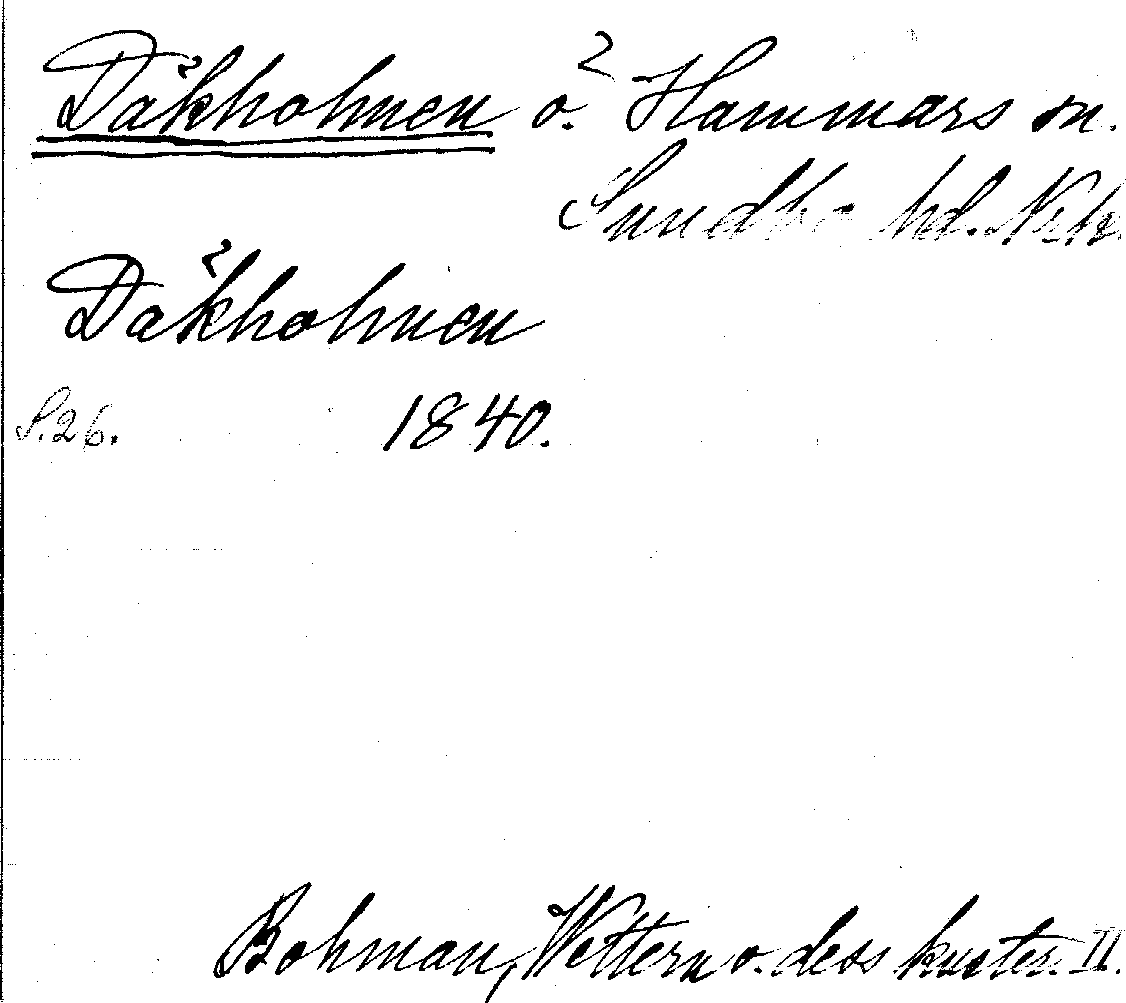 Däkholmen ö. Hammars sn.
Sundbo hd. Nrk.
Däkholmen
S. 26. 1840.
Bohman, Wettern o. dess kuster. II.